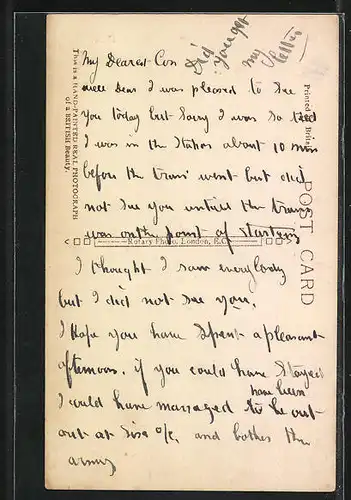 Did
you get
my
letter
My Dearest Con
well Dear I was pleased to see
you today but Sorry I was so tied
I was in the Station about 10 min
before the train went but did
not see you untill the train
was on the point of starting
I thought I saw everybody
but I did not see you.
I Hope you have Spent a pleasant
afternoon. if you could have Stayed
I could have managed to have been
out at Six o/c. and bother the
army
This is a HAND-PAINTED REAL PHOTOGRAPH
of a BRITISH Beauty.
Rotary Photo, London, E.C.
POST CARD
Printed